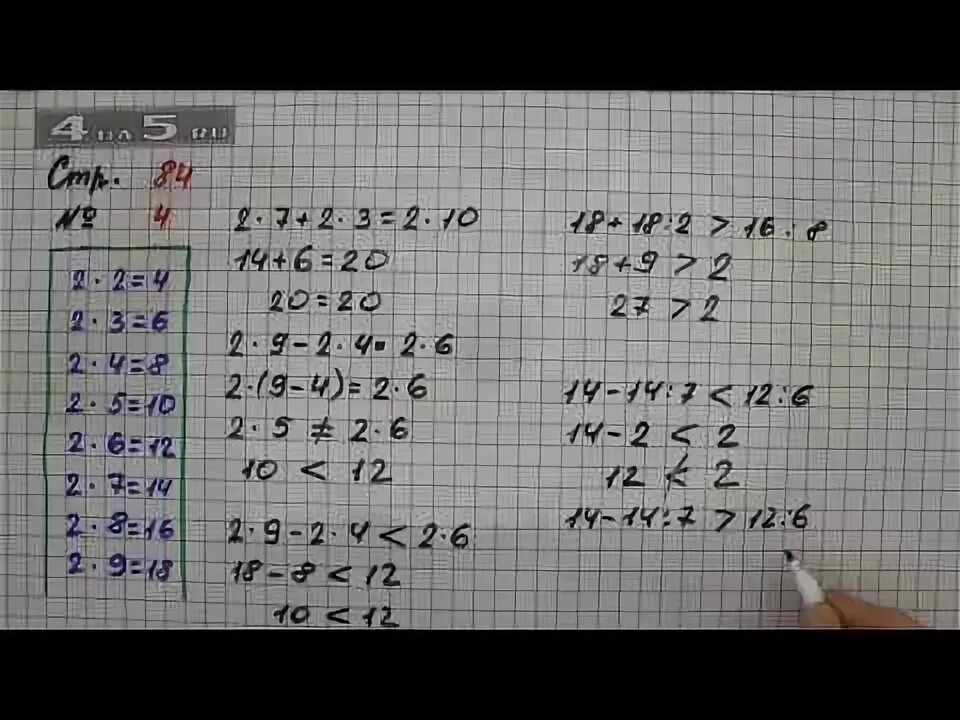 4 на 5 RU
Стр. 84
№ 4
2 · 2 = 4
2 · 3 = 6
2 · 4 = 8
2 · 5 = 10
2 · 6 = 12
2 · 7 = 14
2 · 8 = 16
2 · 9 = 18
2 · 7 + 2 · 3 = 2 · 10
14 + 6 = 20
20 = 20
2 · 9 - 2 · 4 = 2 · 6
2 · (9 - 4) = 2 · 6
2 · 5 ≠ 2 · 6
10 < 12
2 · 9 - 2 · 4 < 2 · 6
18 - 8 < 12
10 < 12
18 + 18 : 2 > 16 : 8
18 + 9 > 2
27 > 2
14 - 14 : 7 < 12 : 6
14 - 2 < 2
12 ≮ 2
14 - 14 : 7 > 12 : 6